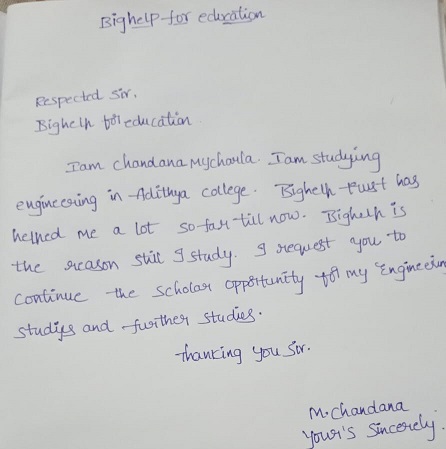 Bighelp for education
Respected Sir,
Bighelp for education
I am Chandana Mycharla. I am studying
engineering in Adithya college. Bighelp trust has
helped me a lot so-far till now. Bighelp is
the reason still I study. I request you to
continue the scholar opportunity for my Engineering
studies and further studies.
Thanking you Sir.
M. Chandana
your's Sincerely.